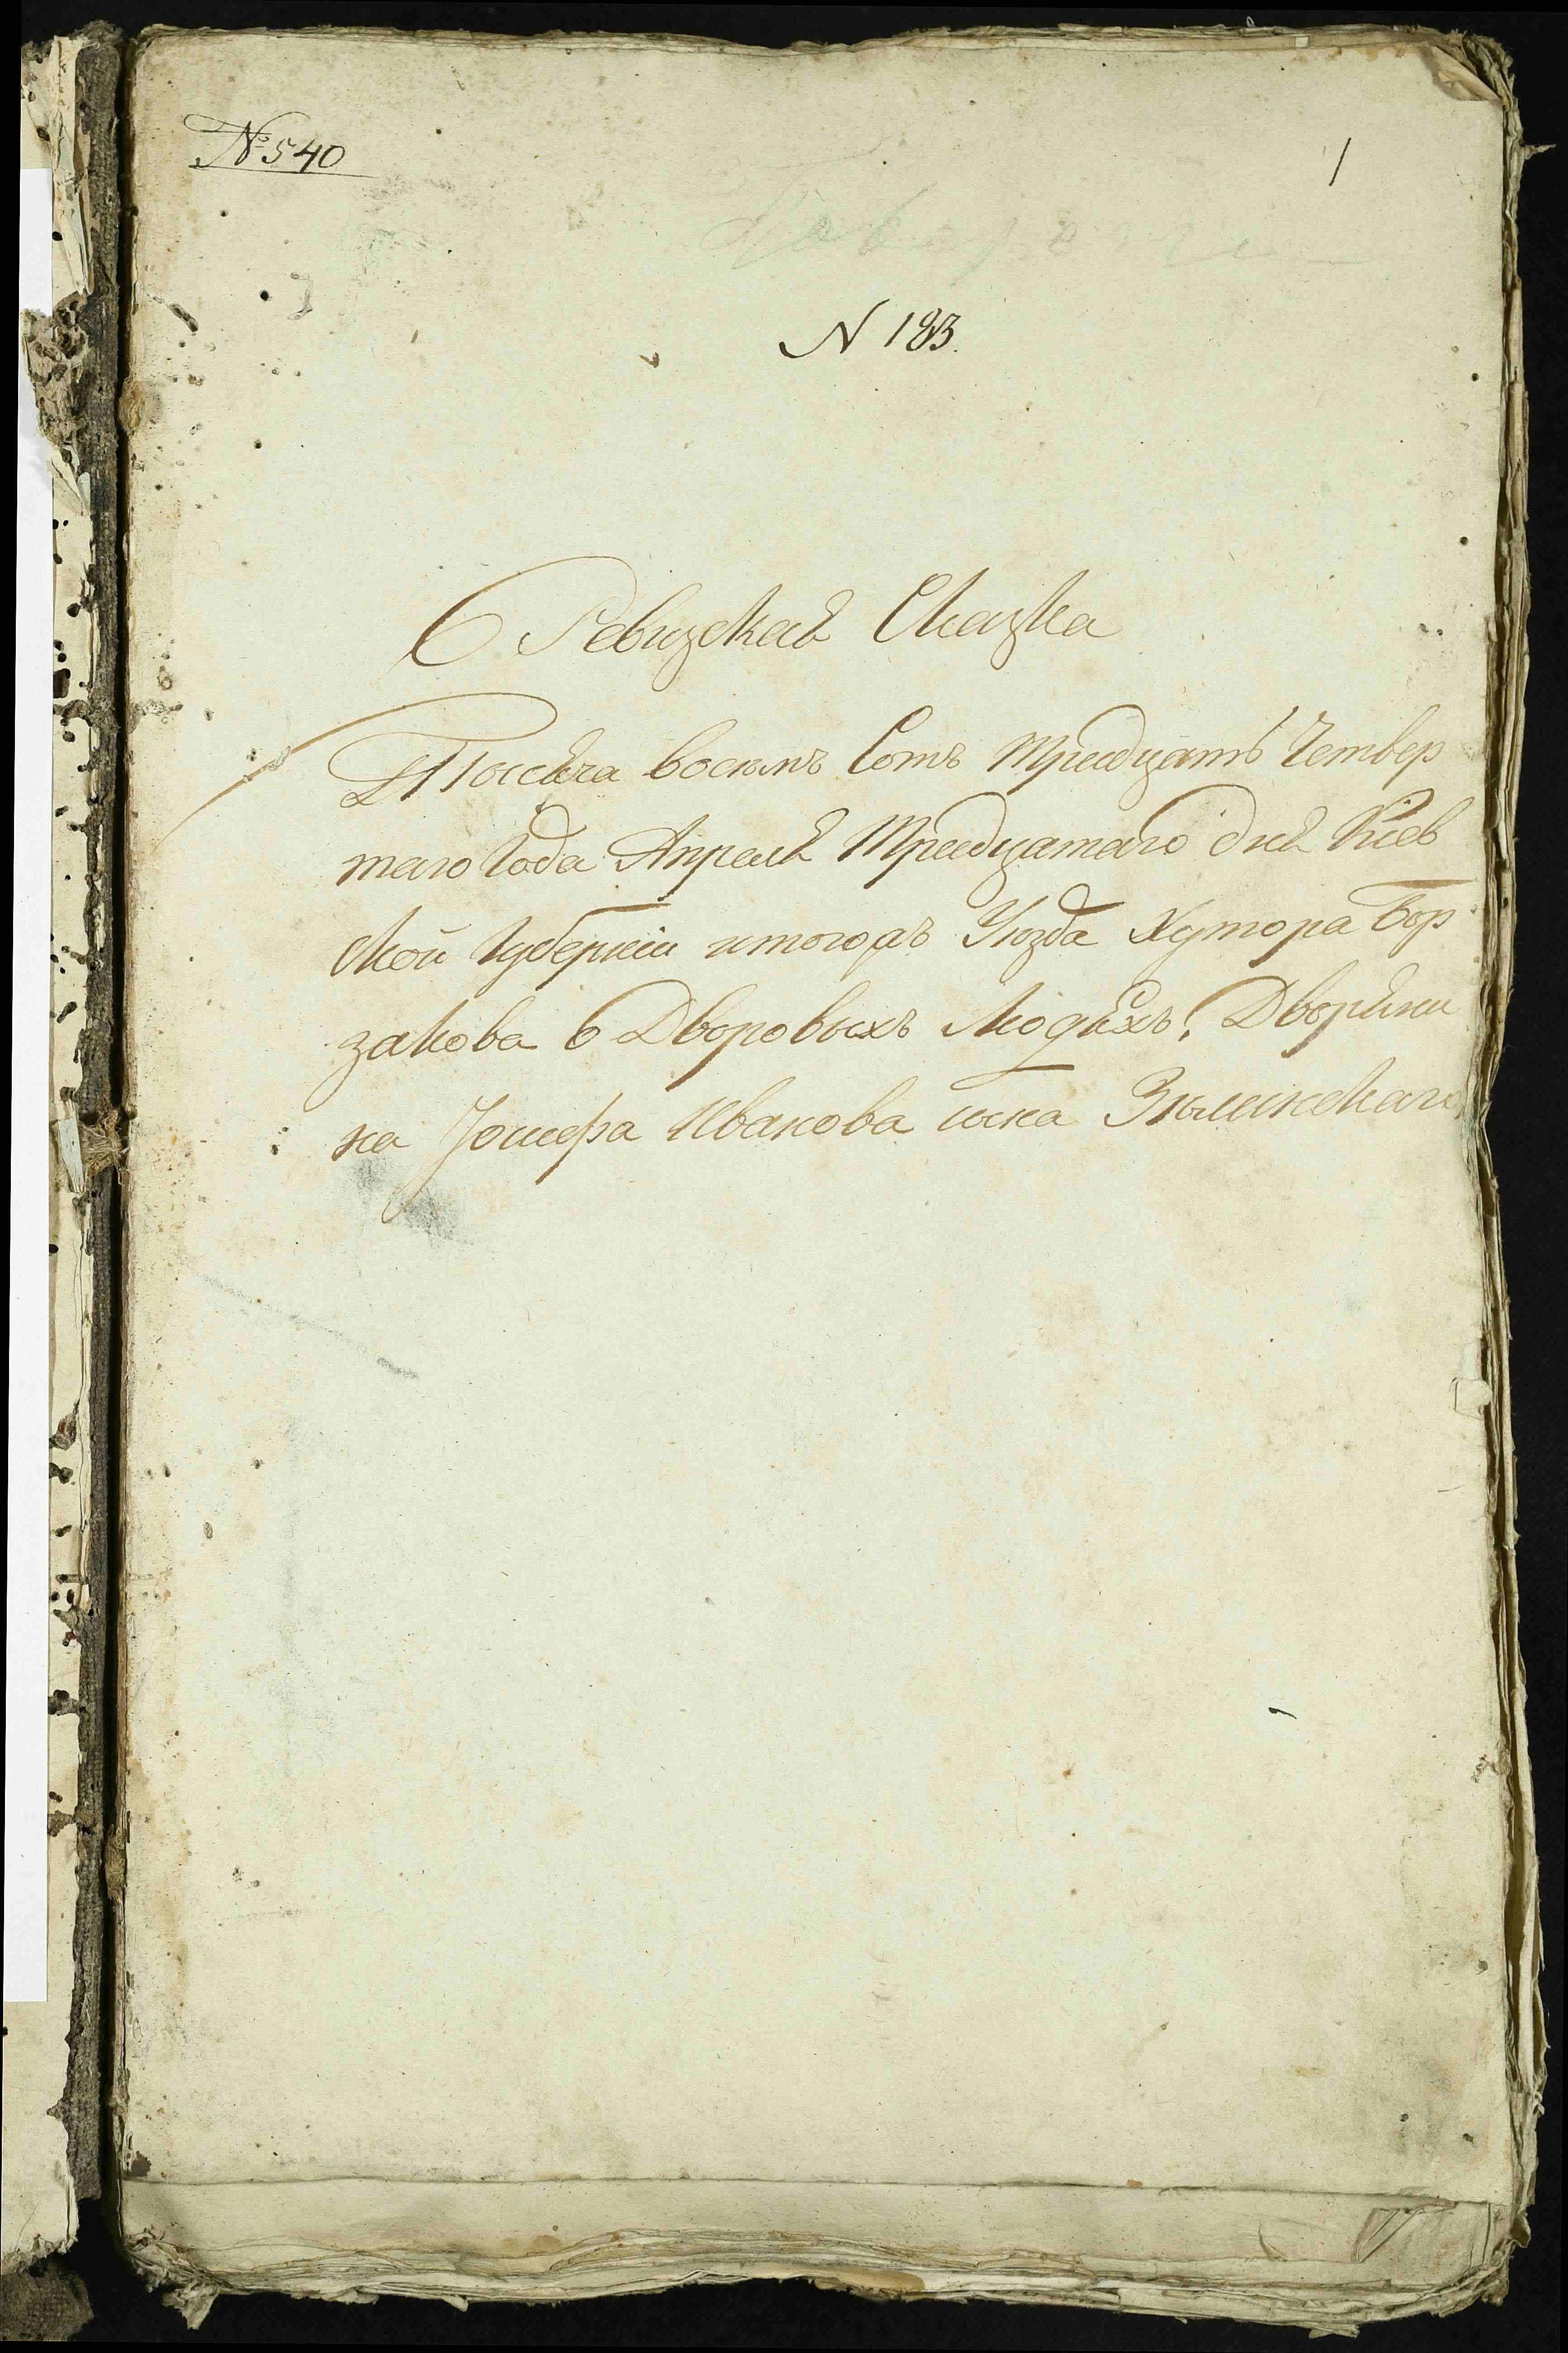 № 540
1
N 183.
Ревизская Сказка
Тысяча восемъ Сотъ тридцать Четвер
таго Года Апреля Тридцатаго дня Кіев
ской Губерніи итогожъ Уюзда Хутора Бер
закова О Дворовыхъ Людѣхъ, Дворяни
на Іосифа Иванова сына